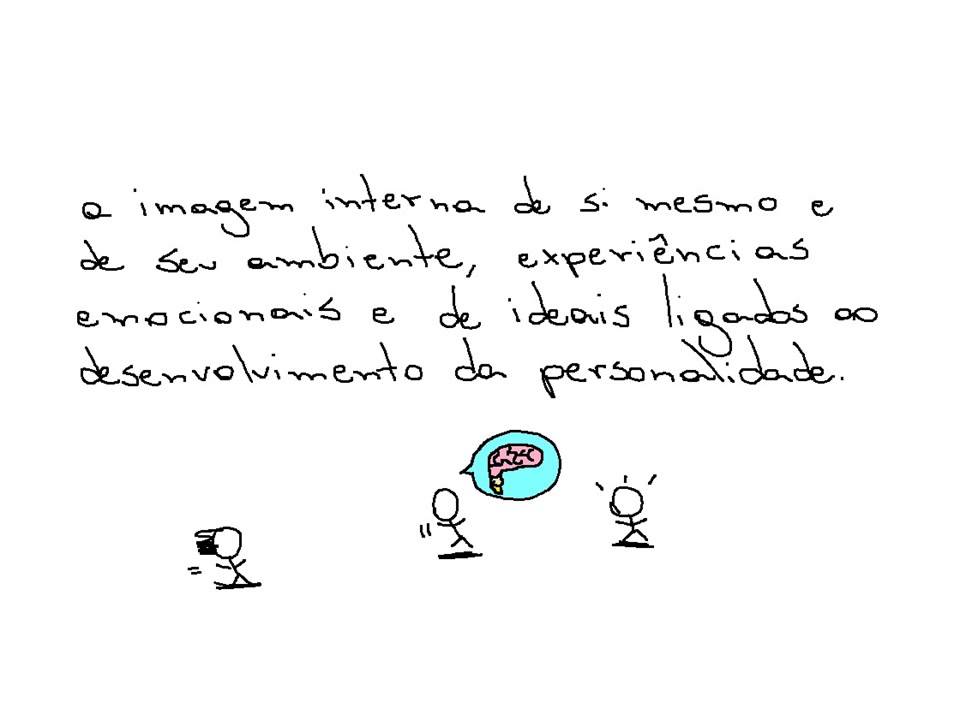 a imagem interna de si mesmo e
de seu ambiente, experiências
emocionais e de ideais ligados ao
desenvolvimento da personalidade.